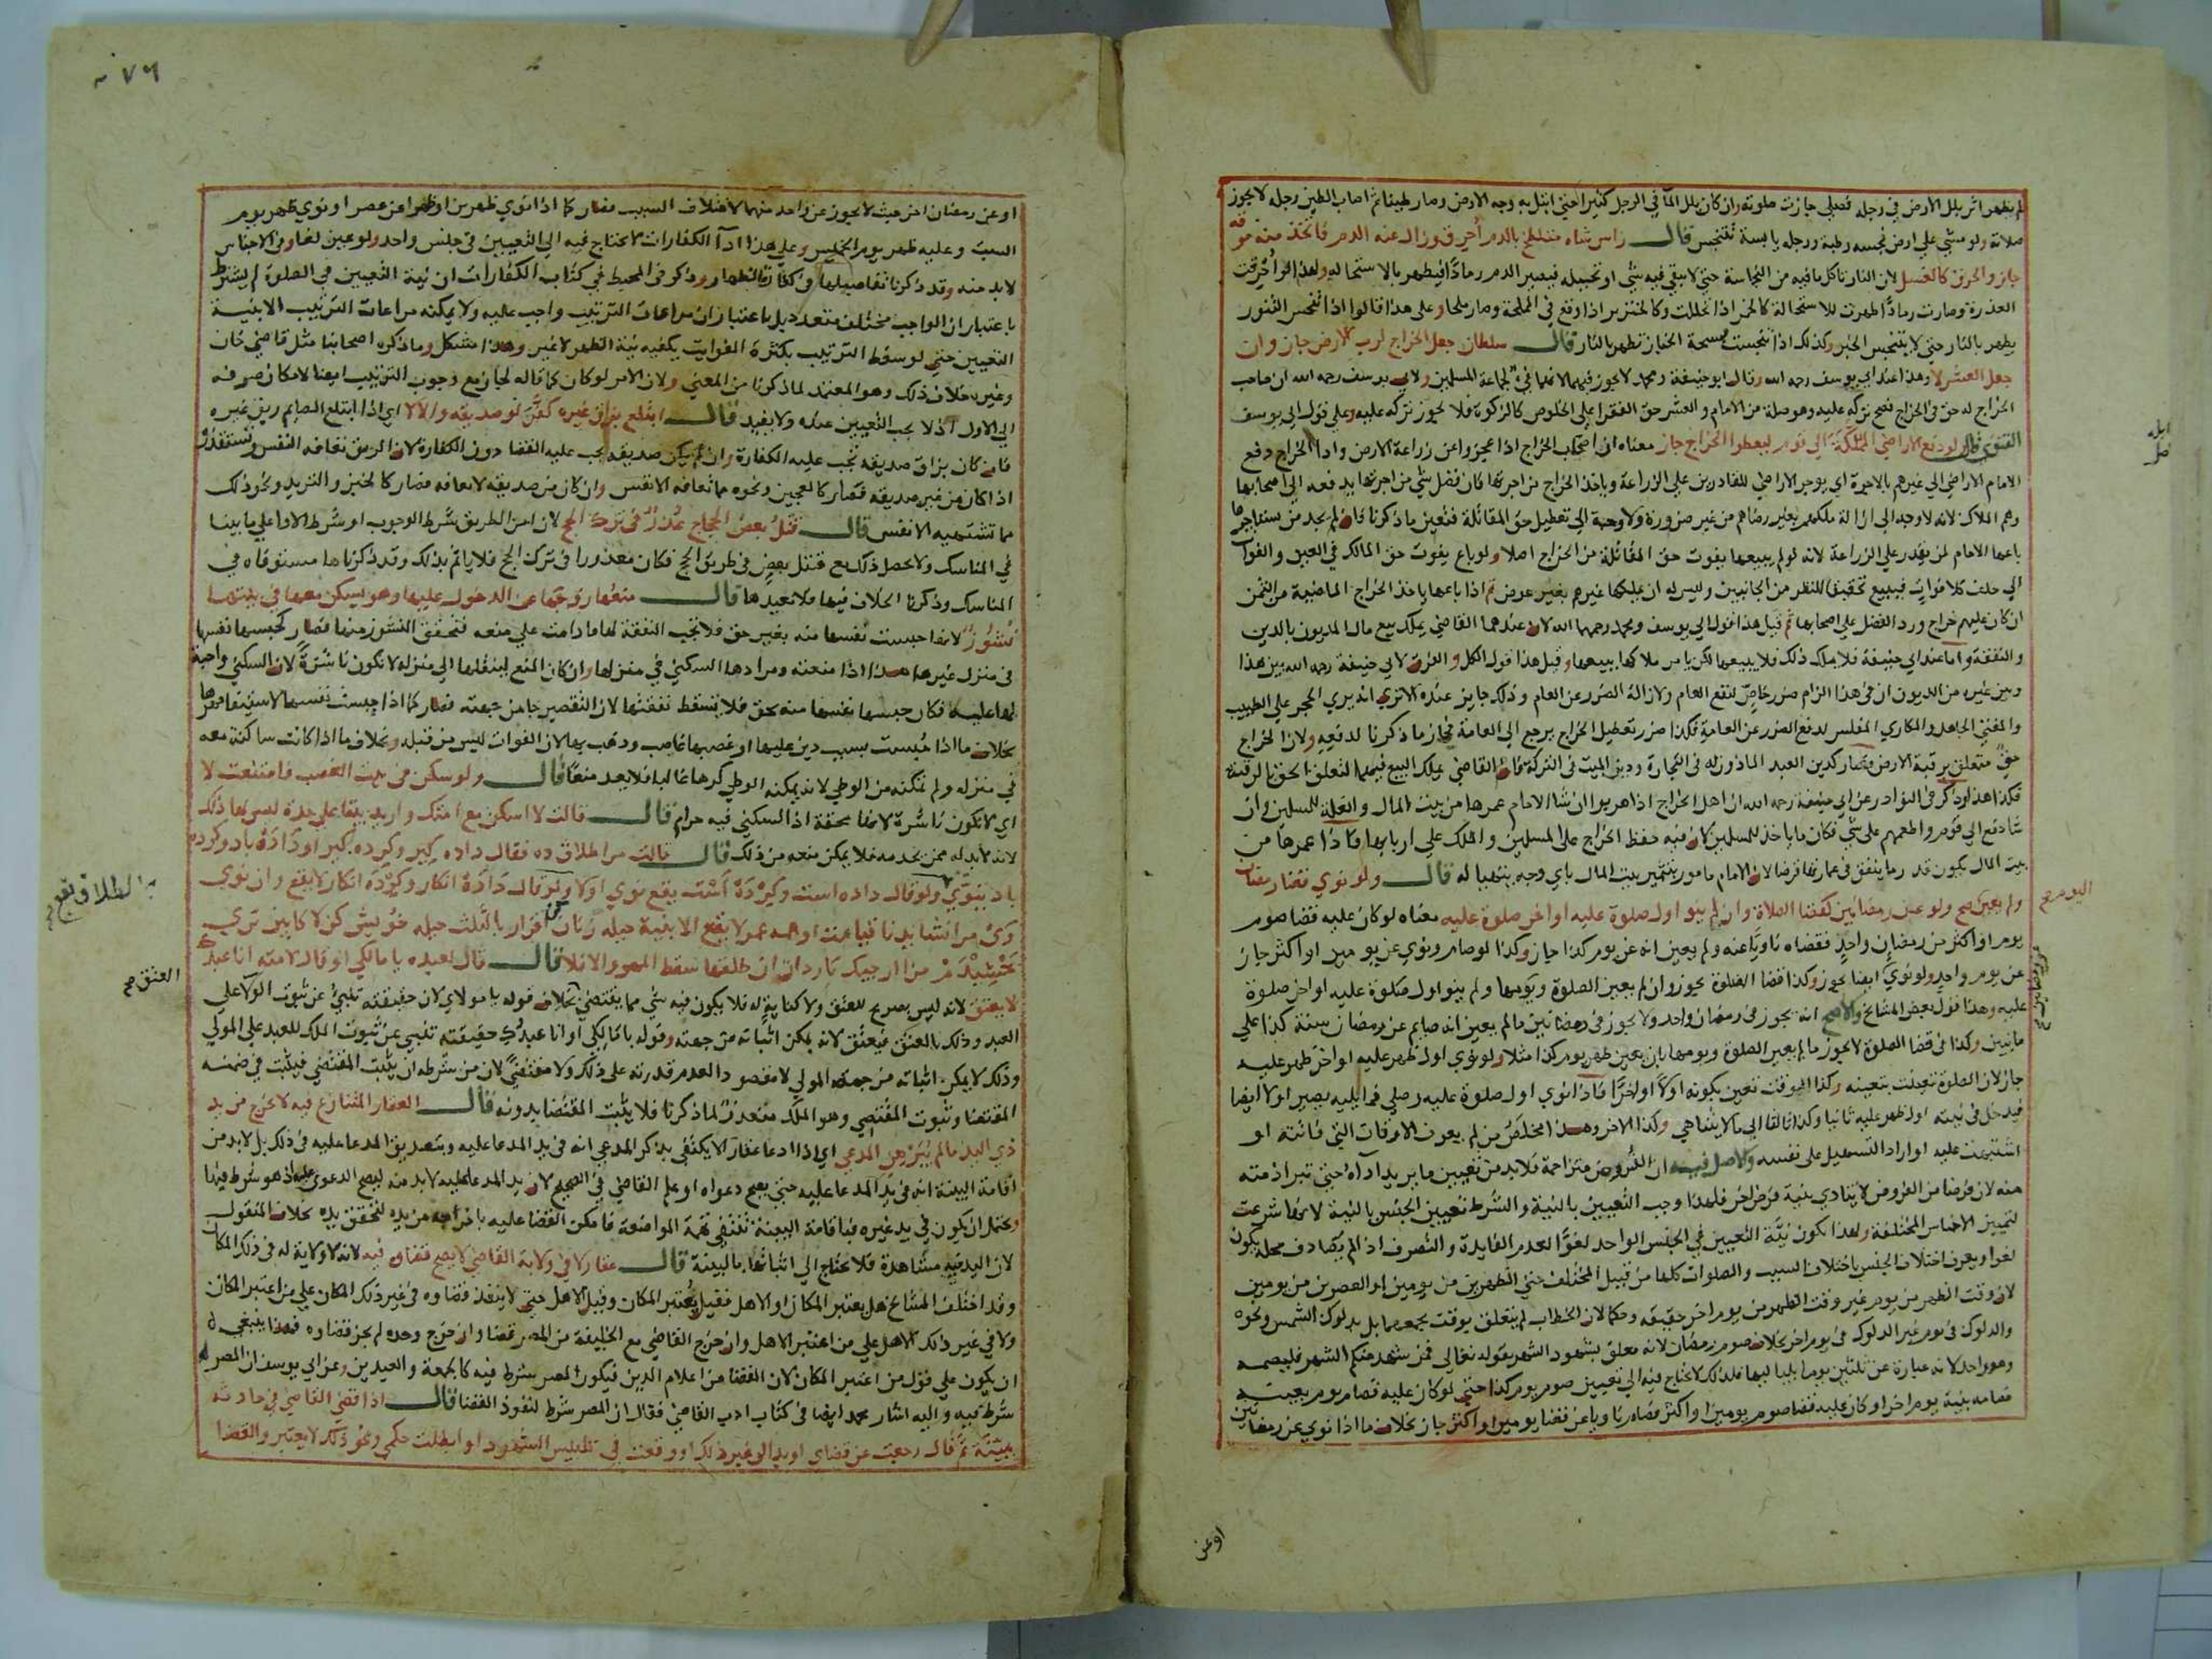 لم يظهر اثر بلل الارض في رجله فصلي جازت صلوته وان كان بلل الما في الرجل كثيرا حتي ابتل به وجه الارض وصار طينا ثم اصاب الطين رجله لا يجوز
صلاته ولو مشي علي ارض نجسه رطبة ورجله يابسة تتنجس قال راس شاه متلطخ بالدم أحرق وزال عنه الدم فاتخذ منه مرقة
جاز والحرق كالغسل لان النار تاكل ما فيه من النجاسة حتي لا يبقي فيه شي او تحيله فيصير الدم رمادًا فيطهر بالاستحالة ولهذا لو أحرقت
العذرة وصارت رمادًا طهرت للاستحالة كالخمر اذا تخللت وكالخنزير اذا وقع في المملحة وصار ملحا وعلي هذا قالوا اذا تنجس التنور
يطهر بالنار حتي لا يتنجس الخبز وكذلك اذا تنجست مسحة الخباز تطهر بالنار قال سلطان جعل الخراج لرب الارض جاز وان
جعل العشر لا وهذا عند ابي يوسف رحمه الله وقال ابو حنيفة ومحمد لا يجوز فيهما لانهما في لجماعة المسلمين ولابي يوسف رحمه الله ان صاحب
الخراج له حق في الخراج فصح تركه عليه وهو صلة من الامام والعشر حق الفقرا علي الخلوص كالزكوة فلا يجوز تركه عليه وعلي قول ابي يوسف
الفتوي قال ولو دفع الاراضي المملكة الي قوم ليعطوا الخراج جاز معناه ان اصحاب الخراج اذا عجزوا عن زراعة الارض وادا الخراج دفع
الامام الاراضي الي غيرهم بالاجرة اي يوجر الاراضي للقادرين علي الزراعة وياخذ الخراج من اجرتها فان فضل شي من اجرتها يدفعه الي اصحابها
وهم الملاك لانه لا وجه الي ازالة ملكهم بغير رضاهم من غير ضرورة ولا وجه الي تعطيل حق المقاتلة فتعين ما ذكرنا فان لم يجد من يستاجرها
باعها الامام لمن يقدر علي الزراعة لانه لو لم يبيعها يفوت حق المقاتلة من الخراج اصلا ولو باع يفوت حق المالك في العين والفوات
الي خلف كلا فوات فيبيع تحقيقا للنظر من الجانبين وليس له ان يملكها غيرهم بغير عوض ثم اذا باعها ياخذ الخراج الماضية من الثمن
ان كان عليهم خراج ورد الفضل علي اصحابها ثم قيل هذا قول ابي يوسف ومحمد رحمهما الله لان عندهما القاضي يملك بيع مال المديون بالدين
والنفقة واما عند ابي حنيفة فلا يملك ذلك فلا يبيعها لكن يامر ملاكها ببيعها وقيل هذا قول الكل والفرق لابي حنيفة رحمه الله بين هذا
وبين غيره من الديون ان في هذا الزام ضرر خاص لنفع العام ولازالة الضرر عن العام وذلك جايز عنده الا تري انه يري الحجر علي الطبيب
والمفتي الجاهل والمكاري المفلس لدفع الضرر عن العامة فكذا ضرر تعطيل الخراج يرجع الي العامة فجاز ما ذكرنا لدفعه ولان الخراج
حق متعلق برقبة الارض فصار كدين العبد الماذون له في التجارة ودين الميت في التركة فان القاضي يملك البيع فيهما لتعلق الحق بالرقبة
فكذا هذا وذكر في النوادر عن ابي حنيفة رحمه الله ان اهل الخراج اذا هربوا ان شا الامام عمرها من بيت المال والغلة للمسلمين وان
شا دفع الي قوم واطعمهم علي شي فكان ما ياخذ للمسلمين لان فيه حفظ الخراج علي المسلمين والملك علي اربابها فاذا عمرها من
بيت المال يكون قدر ما ينفق في عمارتها قرضا لان الامام مامور بتثمير بيت المال باي وجه يتهيا له قال ولو نوي قضا رمضان
ولم يعين صح ولو عن رمضانين كقضا الصلاة وان لم ينو اول صلوة عليه او اخر صلوة عليه معناه لو كان عليه قضا صوم
يوم او اكثر من رمضان واحد فقضاه ناويا عنه ولم يعين انه عن يوم كذا جاز وكذا لو صام ونوي عن يومين او اكثر جاز
عن يوم واحد ولو نوي ايضا يجوز وكذا قضا الصلوة يجوز وان لم يعين الصلوة ويومها ولم ينو اول صلوة عليه او اخر صلوة
عليه وهذا قول بعض المشايخ والاصح انه يجوز في رمضان واحد ولا يجوز في رمضانين ما لم يعين انه صايم عن رمضان سنة كذا علي
ما نبين وكذا في قضا الصلوة لا يجوز ما لم يعين الصلوة ويومها بان يعين ظهر يوم كذا مثلا ولو نوي اول ظهر عليه او اخر ظهر عليه
جاز لان الصلوة تعينت بتعيينه وكذا الوقت تعين بكونه اولا او اخرا فاذا نوي اول صلوة عليه وصلي فما يليه يصير اولا ايضا
فيدخل في نيته اول ظهر عليه ثانيا وكذا ثالثا الي ما لا يتناهي وكذا الاخر وهذا المخلص من لم يعرف الاوقات التي فاتته او
اشتبهت عليه او اراد التسهيل علي نفسه والاصل فيه ان الفروض متزاحمة فلا بد من تعيين ما يريد اداه حتي تبرا ذمته
منه لان فرضا من الفروض لا يتادي بنية فرض اخر فلهذا وجب التعيين بالنية والشرط تعيين الجنس بالنية لانها شرعت
لتمييز الاجناس المختلفة ولهذا تكون نية التعيين في الجنس الواحد لغوا لعدم الفايدة والتصرف اذا لم يصادف محله يكون
لغوا ويعرف اختلاف الجنس باختلاف السبب والصلوات كلها من قبيل المختلف حتي الظهرين من يومين او العصرين من يومين
لان وقت الظهر من يوم غير وقت الظهر من يوم اخر حقيقة وحكما لان الخطاب لم يتعلق بوقت يجمعهما بل بدلوك الشمس ونحوه
والدلوك في يوم غير الدلوك في يوم اخر بخلاف صوم رمضان لانه معلق بشهود الشهر بقوله تعالي فمن شهد منكم الشهر فليصمه
وهو واحد لانه عبارة عن ثلثين يوما بلياليها فلذلك لا يحتاج فيه الي تعيين صوم يوم كذا حتي لو كان عليه قضا يوم بعينه
فصامه بنية يوم اخر او كان عليه قضا صوم يومين او اكثر فصام ناويا عن قضا يومين او اكثر جاز بخلاف ما اذا نوي عن رمضانين
اليوم صح
او عن
٧٦
او عن رمضان اخر حيث لا يجوز عن واحد منهما لاختلاف السبب فصار كما اذا نوي ظهرين او ظهرا عن عصر او نوي ظهر يوم
السبت وعليه ظهر يوم الخميس وعلي هذا ادآ الكفارات لا يحتاج فيه الي التعيين في جنس واحد ولو عين لغا وفي الاجناس
لا بد منه وقد ذكرنا تفاصيلها في كفارة الظهار وذكر في المحيط في كتاب الكفارات ان نية التعيين في الصلوة لم يشترط
باعتبار ان الواجب مختلف متعدد بل باعتبار ان مراعات الترتيب واجب عليه ولا يمكنه مراعات الترتيب الا بنية
التعيين حتي لو سقط الترتيب بكثرة الفوايت يكفيه نية الظهر لا غير وهذا مشكل وما ذكره اصحابنا مثل قاضي خان
وغيره خلاف ذلك وهو المعتمد لما ذكرنا من المعني ولان الامر لو كان كما قاله لجاز مع وجوب الترتيب ايضا لامكان صرفه
الي الاول اذ لا يجب التعيين عنده ولا يفيد قال ابتلع بزاق غيره كفّر لو صديقه والا لا اي اذا ابتلع الصايم ريق غيره
فان كان بزاق صديقه تجب عليه الكفارة وان لم يكن صديقه يجب عليه القضا دون الكفارة لان الريق تعافه النفس وتستقذره
اذا كان من غير صديقه فصار كالعجين ونحوه مما تعافه الانفس وان كان من صديقه لا تعافه فصار كالخبز والثريد ونحو ذلك
مما تشتهيه الانفس قال قتل بعض الحجاج عذر في ترك الحج لان امن الطريق شرط الوجوب او شرط الادا علي ما بينا
في المناسك ولا يحصل ذلك مع قتل بعض في طريق الحج فكان معذورا في ترك الحج فلا ياثم بذلك وقد ذكرناها مستوفاه في
المناسك وذكرنا الخلاف فيها فلا نعيدها قال منعها زوجها عن الدخول عليها وهو يسكن معها في بيتها
نشوز لانها حبست نفسها منه بغير حق فلا تجب النفقة لها ما دامت علي منعه فتحقق النشوز منها فصار كحبسها نفسها
في منزل غيرها هذا اذا منعته ومرادها السكني في منزلها وان كان المنع لينقلها الي منزله لا تكون ناشزة لان السكني واجبة
لها عليه فكان حبسها نفسها منه بحق فلا تسقط نفقتها لان التقصير جا من جهته فصار كما اذا حبست نفسها لاستيفا مهرها
بخلاف ما اذا حُبست بسبب دين عليها او غصبها غاصب وذهب بها لان الفوات ليس من قبله وبخلاف ما اذا كانت ساكنة معه
في منزله ولم تمكنه من الوطي لانه يمكنه الوطي كرها غالبا فلا يعد منعا قال ولو سكن في بيت الغصب فامتنعت لا
اي لا تكون ناشزة لانها محقة اذ السكني فيه حرام قال قالت لا اسكن مع امتك واريد بيتا علي حدة ليس لها ذلك
لانه لا بد له ممن يخدمه فلا يمكن منعه من ذلك قال قالت مرا طلاق ده فقال داده كير وكرده كير او داده باد وكرده
باد ينوي ولو قال داده است وكرده است يقع نوي اولا ولو قال داده انكار وكرده انكار لا يقع وان نوي
لا يعتق لانه ليس بصريح للعتق ولا كناية له فلا يكون فيه شي مما يقتضي بخلاف قوله يا مولاي لان حقيقته تنبي عن ثبوت الولا علي
العبد وذلك بالعتق فيعتق لانه يمكن اثباته من جهته وقوله يا مالكي او انا عبدك حقيقته تنبي عن ثبوت الملك للعبد علي المولي
وذلك لا يمكن اثباته من جهة المولي لا مقصودا لعدم قدرته علي ذلك ولا مقتضيً لان من شرطه ان يثبت المقتضي فيثبت في ضمنه
المقتضا وثبوت المقتضي وهو الملك متعذر لما ذكرنا فلا يثبت المقتضا بدونه قال العقار المتنازع فيه لا يخرج من يد
ذي اليد ما لم يُبَرْهِن المدعي اي اذا ادعا عقارا لا يكتفي بذكر المدعي انه في يد المدعا عليه وبتصديق المدعا عليه في ذلك بل لا بد من
اقامة البينة انه في يد المدعا عليه حتي يصح دعواه او علم القاضي في الصحيح لان يد المدعا عليه لا بد منه ليصح الدعوي عليه اذ هو شرط فيها
ويحتمل ان يكون في يد غيره فباقامة البينة تنتفي تهمة المواضعة فامكن القضا عليه باخراجه من يده لتحقق يده بخلاف المنقول
لان اليد فيه مشاهدة فلا يحتاج الي اثباتها بالبينة قال عقار لا في ولاية القاضي لا يصح قضاوه فيه لانه لا ولاية له في ذلك المكان
وقد اختلف المشايخ هل يعتبر المكان او الاهل فقيل يُعتبر المكان وقيل الاهل حتي لا ينفذ قضاوه في غير ذلك المكان علي من اعتبر المكان
ولا في غير ذلك الاهل علي من اعتبر الاهل وان خرج القاضي مع الخليفة من المصر قضا وان خرج وحده لم يجز قضاوه فهذا ينبغي
ان يكون علي قول من اعتبر المكان لان القضا من اعلام الدين فيكون المصر شرط فيه كالجمعة والعيدين وعن ابي يوسف ان المصر
شرط فيه واليه اشار محمد ايضا في كتاب ادب القاضي فقال ان المصر شرط لنفوذ القضا قال اذا قضي القاضي في حادثه
ببينة ثم قال رجعت عن قضاي او بدا لي غير ذلك او وقفت في تلبيس الشهود او ابطلت حكمي ونحو ذلك لا يعتبر والقضا
العتق صح